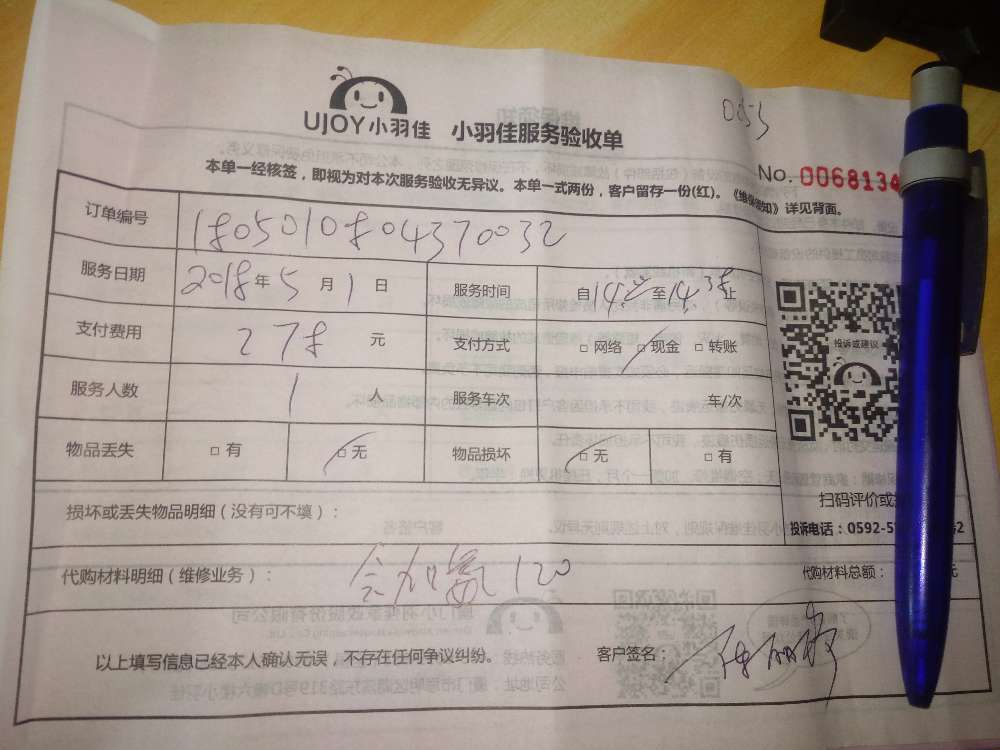 0053
UJOY小羽佳 小羽佳服务验收单
No. 0068134
本单一经核签，即视为对本次服务验收无异议。本单一式两份，客户留存一份(红)。《维保须知》详见背面。
订单编号 1805010804370032
服务日期 2018年5月1日 服务时间 自14:00至14:38止
支付费用 278 元 支付方式 □网络 □现金 □转账
投诉或建议
服务人数 1 人 服务车次 车/次
物品丢失 □有 □无 物品损坏 □无 □有
扫码评价或
损坏或丢失物品明细（没有可不填）：
投诉电话：0592-5
代购材料明细（维修业务）： 加氟 120 代购材料总额： 元
以上填写信息已经本人确认无误，不存在任何争议纠纷。 客户签名：